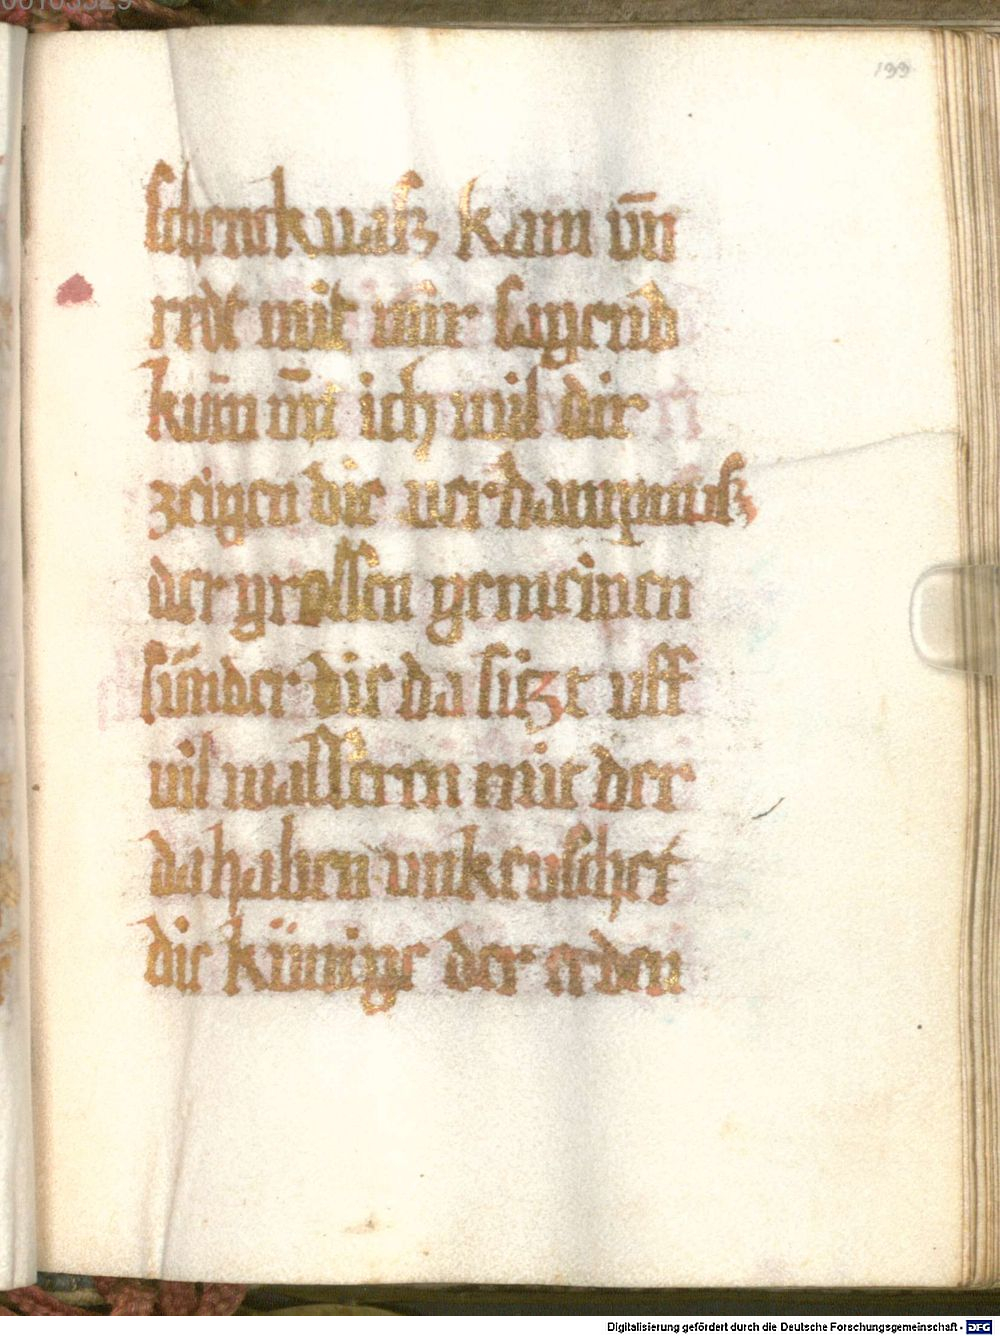 199
schenckuaß kam vn̄
redt mit mir sagend
kūm vn̄ ich wil dir
zeigen die uerdampnuß
der grossen gemeinen
sünder die da siczt uff
uil wasseren mit der
da haben unkeuschet
die künige der erden
Digitalisierung gefördert durch die Deutsche Forschungsgemeinschaft - DFG